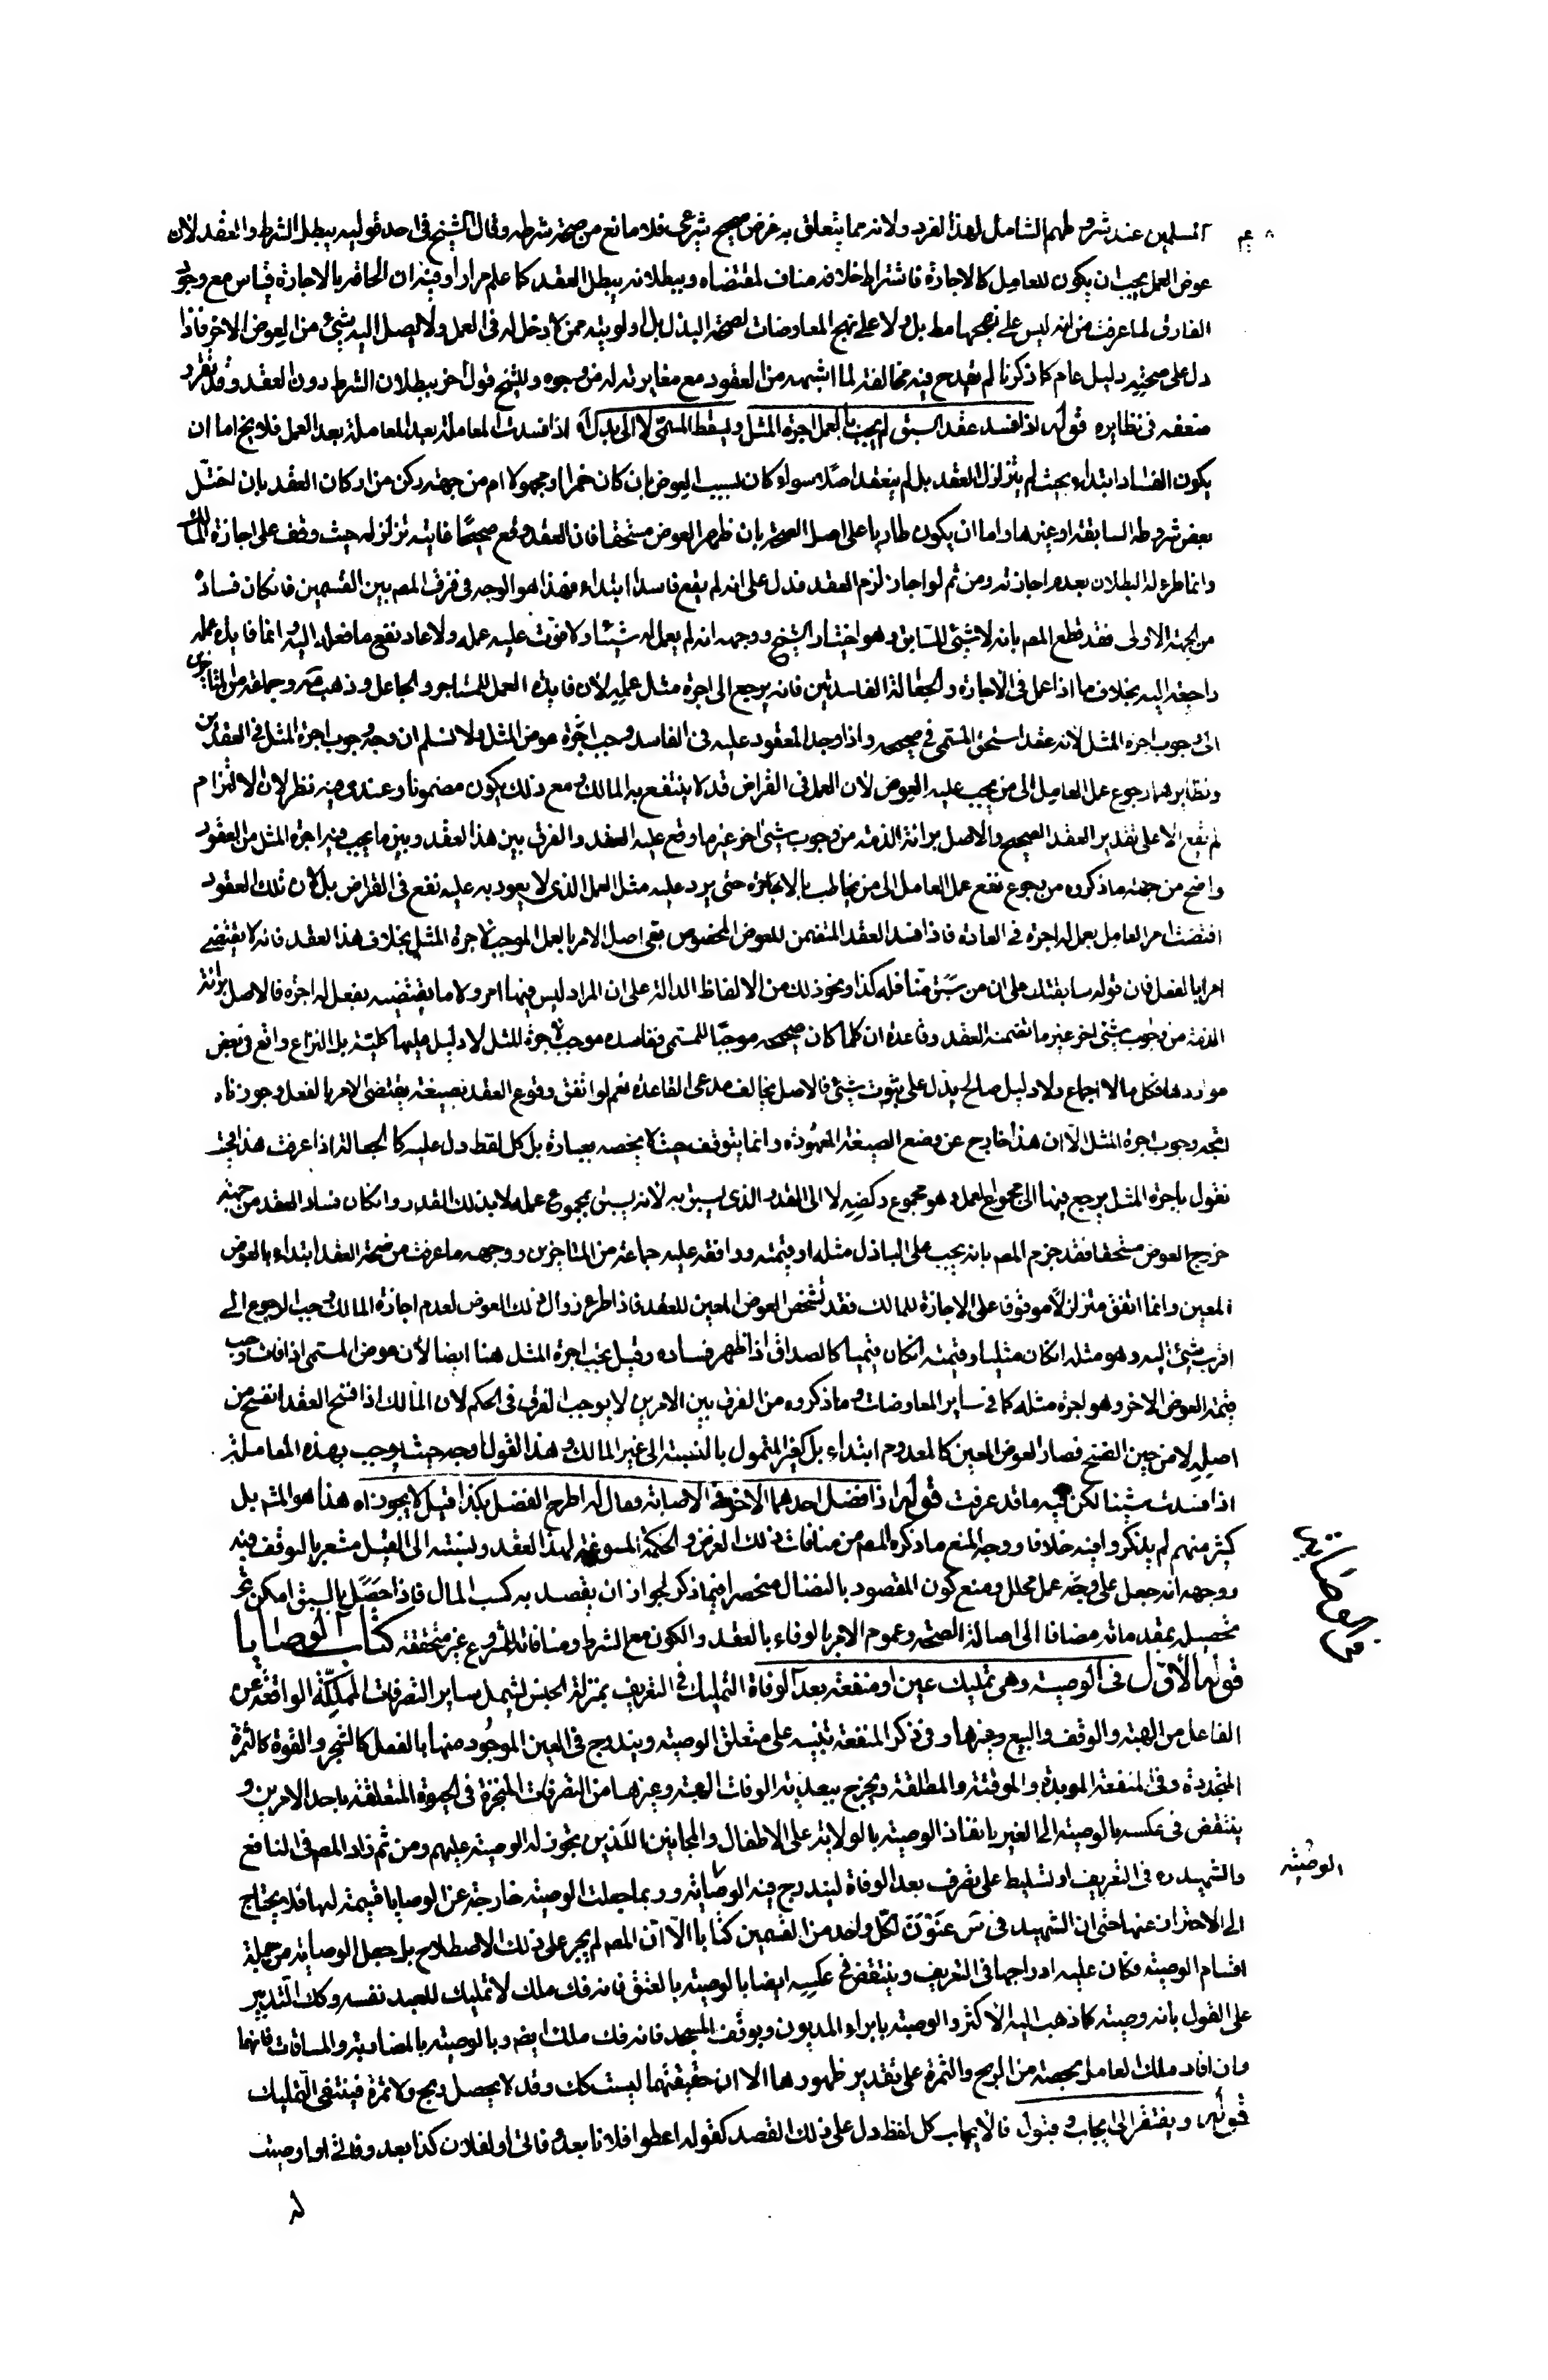 المسلمين عند شروطهم الشامل لهذا الفرد ولانه مما يتعلق به غرض صحيح شرعى فلا مانع من صحة شرطه وقال الشيخ فى احد قوليه يبطل الشرط والعقد لان
عوض العمل يجب ان يكون للعامل كالاجارة فاشتراط خلافه مناف لمقتضاه وببطلانه يبطل العقد كما علم مرارا وفيه ان الحاقه بالاجارة قياس مع وجود
الفارق لما عرفت من انه ليس على نهجها مط بل ولا على نهج المعاوضات لصحة البذل بل اولويته ممن لا دخل له فى العمل ولا يصل اليه شئ من العوض الاخر فاذا
دل على صحته دليل عام كما ذكرنا لم يقدح فيه مخالفته لما اشبهه من العقود مع مغايرته له من وجوه وللشيخ قول اخر ببطلان الشرط دون العقد وقد تقرر
ضعفه فى نظايره قوله اذا فسد عقد السبق لم يجب بالعمل اجرة المثل ويسقط المسمى لا الى بدل اه اذا فسدت المعاملة بعد المعاملة بعد العمل فلا يخ اما ان
يكون الفساد ابتداء بحيث لم يتزلزل العقد بل لم ينعقد اصلا سواء كان بسبب العوض بان كان خمرا او مجهولا ام من جهة ركن من اركان العقد بان اختل
بعض شروطه السابقة او غيرها واما ان يكون طاريا على اصل الصحة بان ظهر العوض مستحقا فان العقد وقع صحيحا غايته تزلزله حيث وقف على اجازة المالك
وانما طرء له البطلان بعدم اجازته ومن ثم لو اجاز لزم العقد فدل على انه لم يقع فاسدا ابتداء فهذا هو الوجه فى فرق المص بين القسمين فان كان فساده
من الجهة الاولى فقد قطع المص بانه لا شئ للسابق وهو اختيار الشيخ ووجهه انه لم يعمل له شيئا ولا فوت عليه عمله ولا عاد نفع ما فعله اليه وانما فايدة عمله
راجعة اليه بخلاف ما اذا عمل فى الاجارة والجعالة الفاسدتين فانه يرجع الى اجرة مثل عمله لان فايدة العمل للمستاجر والجاعل وذهب وجماعة من المتاخرين
الى وجوب اجرة المثل لانه عقد استحق المسمى فى صحيحه واذا وجد المعقود عليه فى الفاسد وجب اجرة عوض المثل ولا نسلم ان وجه وجوب اجرة المثل فى العقدين
ونظايرهما رجوع عمل العامل الى من يجب عليه العوض لان العمل فى القراض قد لا ينتفع به المالك ومع ذلك يكون مضمونا وعندى فيه نظر لان الالتزام
لم يقع الا على تقدير العقد الصحيح والاصل برائة الذمة من وجوب شئ اخر غير ما وقع عليه العقد والفرق بين هذا العقد وبين ما يجب فيه اجرة المثل من العقود
واضح من جهة ما ذكروه من رجوع نفع عمل العامل الى من يخاطب بالاجارة حتى يرد عليه مثل العمل الذى لا يعود به عليه نفع فى القراض بل لان تلك العقود
اقتضت امر العامل بعمل له اجرة فى العادة فاذا فسد العقد المتضمن للعوض المخصوص بقى اصل الامر بالعمل الموجب لاجرة المثل بخلاف هذا العقد فانه لا يقتضى
امرا بالفعل فان قوله سابقتك على ان من سبق منا فله كذا ونحو ذلك من الالفاظ الدالة على ان المراد ليس فيها امر ولا ما يقتضيه بفعل له اجرة فالاصل برائة
الذمة من وجوب شئ اخر غير ما تضمنه العقد وقاعدة ان كلما كان صحيحه موجبا للمسمى ففاسده موجب لاجرة المثل لا دليل عليها كلية بل النزاع واقع فى بعض
مواردها فكل ما لا اجماع ولا دليل صالح يدل على ثبوت شئ فالاصل يخالف مدعى القاعدة نعم لو اتفق وقوع العقد بصيغة يقتضى الامر بالفعل وجوزناه
اتجه وجوب اجرة المثل الا ان هذا خارج عن وضع الصيغة المعهودة وانما يتوقف حيث لا يخصه بعبارة بل كل لفظ دل عليه كالجعالة اذا عرفت هذا فحيث
نقول باجرة المثل يرجع فيها الى مجموع العمل وهو مجموع ركضه لا الى القدر الذى يسبق به لانه يسبق بمجموع عمله لا بذلك القدر وان كان فساد العقد من جهة
خروج العوض مستحقا فقد جزم المص بانه يجب على الباذل مثله او قيمته ووافقه عليه جماعة من المتاخرين ووجهه ما عرفت من صحة العقد ابتداء بالعوض
المعين وانما اتفق متزلزلا موقوفا على الاجازة للمالك فقد تشخص العوض المعين للعقد فاذا طرء زوال ذلك العوض لعدم اجازة المالك وجب الرجوع الى
اقرب شئ اليه وهو مثله ان كان مثليا وقيمته ان كان قيميا كالصداق اذا ظهر فساده وقيل يجب اجرة المثل هنا ايضا لان عوض المسمى اذا فات وجب
قيمة العوض الاخر وهو اجرة مثله كما فى ساير المعاوضات وما ذكروه من الفرق بين الامرين لا يوجب الفرق فى الحكم لان المالك اذا فسخ العقد انفسخ من
اصله لا من حين الفسخ فصار العوض المعين كالمعدوم ابتداء بل كغير المتمول بالنسبة الى غير المالك وهذا القول اوجه حيث يوجب بهذه المعاملة
اذا فسدت شيئا لكن فيه ما قد عرفت قوله اذا فضل احدهما الاخر فى الاصابة وقال له اطرح الفضل بكذا قيل لا يجوز اه هذا هو المشهور بل
كثير منهم لم يذكروا فيه خلافا ووجه المنع ما ذكره المص من منافات ذلك الغرض والحكمة المسوغة لهذا العقد ونسبته الى القيل مشعر بالتوقف فيه
ووجهه انه جعل على وجه عمل محلل ومنع كون المقصود بالنضال منحصرا فيما ذكر لجواز ان يقصد به كسب المال فاذا حصل بالسبق امكن
تحصيله بمقدماته مضافا الى اصالة الصحة وعموم الامر بالوفاء بالعقد والكون مع الشرط ومنافاته للمشروع غير متحققة كتاب الوصايا
قوله الاول فى الوصية وهى تمليك عين او منفعة بعد الوفاة التمليك فى التعريف بمنزلة الجنس لشمل ساير التصرفات المملكة الواقعة من
الفاعل من الهبة والوقف والبيع وغيرها وفى ذكر المنفعة تنبيه على متعلق الوصية ويندرج فى العين الموجود منها بالفعل كالشجر والقوة كالثمرة
المتجددة وفى المنفعة الموبدة والموقتة والمطلقة ويخرج ببعدية الوفات الهبة وغيرها من التصرفات المنجزة فى الحيوة المتعلقة باحد الامرين و
ينتقض فى عكسه بالوصية الى الغير بانفاذ الوصية بالولاية على الاطفال والمجانين الذين تجوز له الوصية عليهم ومن ثم زاد المص فى النافع
والشهيد ره فى التعريف او تسليط على تصرف بعد الوفاة ليندرج فيه الوصاية وربما جعلت الوصية خارجة عن الوصايا قسيمة لها فلا يحتاج
الى الاحتراز عنها حتى ان الشهيد فى س عنون لكل واحد من القسمين كتابا الا ان المص لم يجر على ذلك الاصطلاح بل جعل الوصاية من جملة
اقسام الوصية وكان عليه ادراجها فى التعريف وينتقض فى عكسه ايضا بالوصية بالعتق فانه فك ملك لا تمليك للعبد نفسه وكك التدبير
على القول بانه وصية كما ذهب اليه الاكثر والوصية بابراء المديون وبوقف المسجد فانه فك ملك ايض وبالوصية بالمضاربة والمساقات فانهما
وان افاد ملك العامل بحصته من الربح والثمرة على تقدير ظهورها الا ان حقيقتهما ليست كك وقد لا يحصل ربح ولا ثمرة فينتفى التمليك
قوله ويفتقر الى ايجاب وقبول فالايجاب كل لفظ دل على ذلك القصد كقوله اعطوا فلانا بعد وفاتى او لفلان كذا بعد وفاتى او اوصيت
له
الوصية